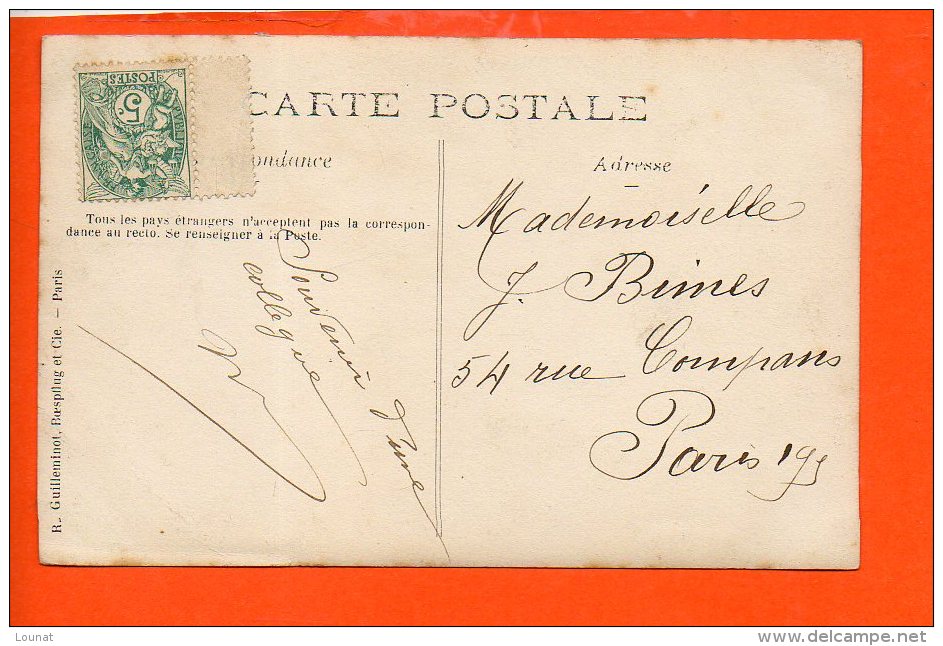 CARTE POSTALE
POSTES
5c
ondance
Adresse
Tous les pays étrangers n'acceptent pas la correspon-
dance au recto. Se renseigner à la Poste.
Souvenir d'une
collègue
Mademoiselle
J. Bimes
54 rue Compans
Paris 19e
R. Guilleminot, Bœspflug et Cie. — Paris
Lounat
www.delcampe.net